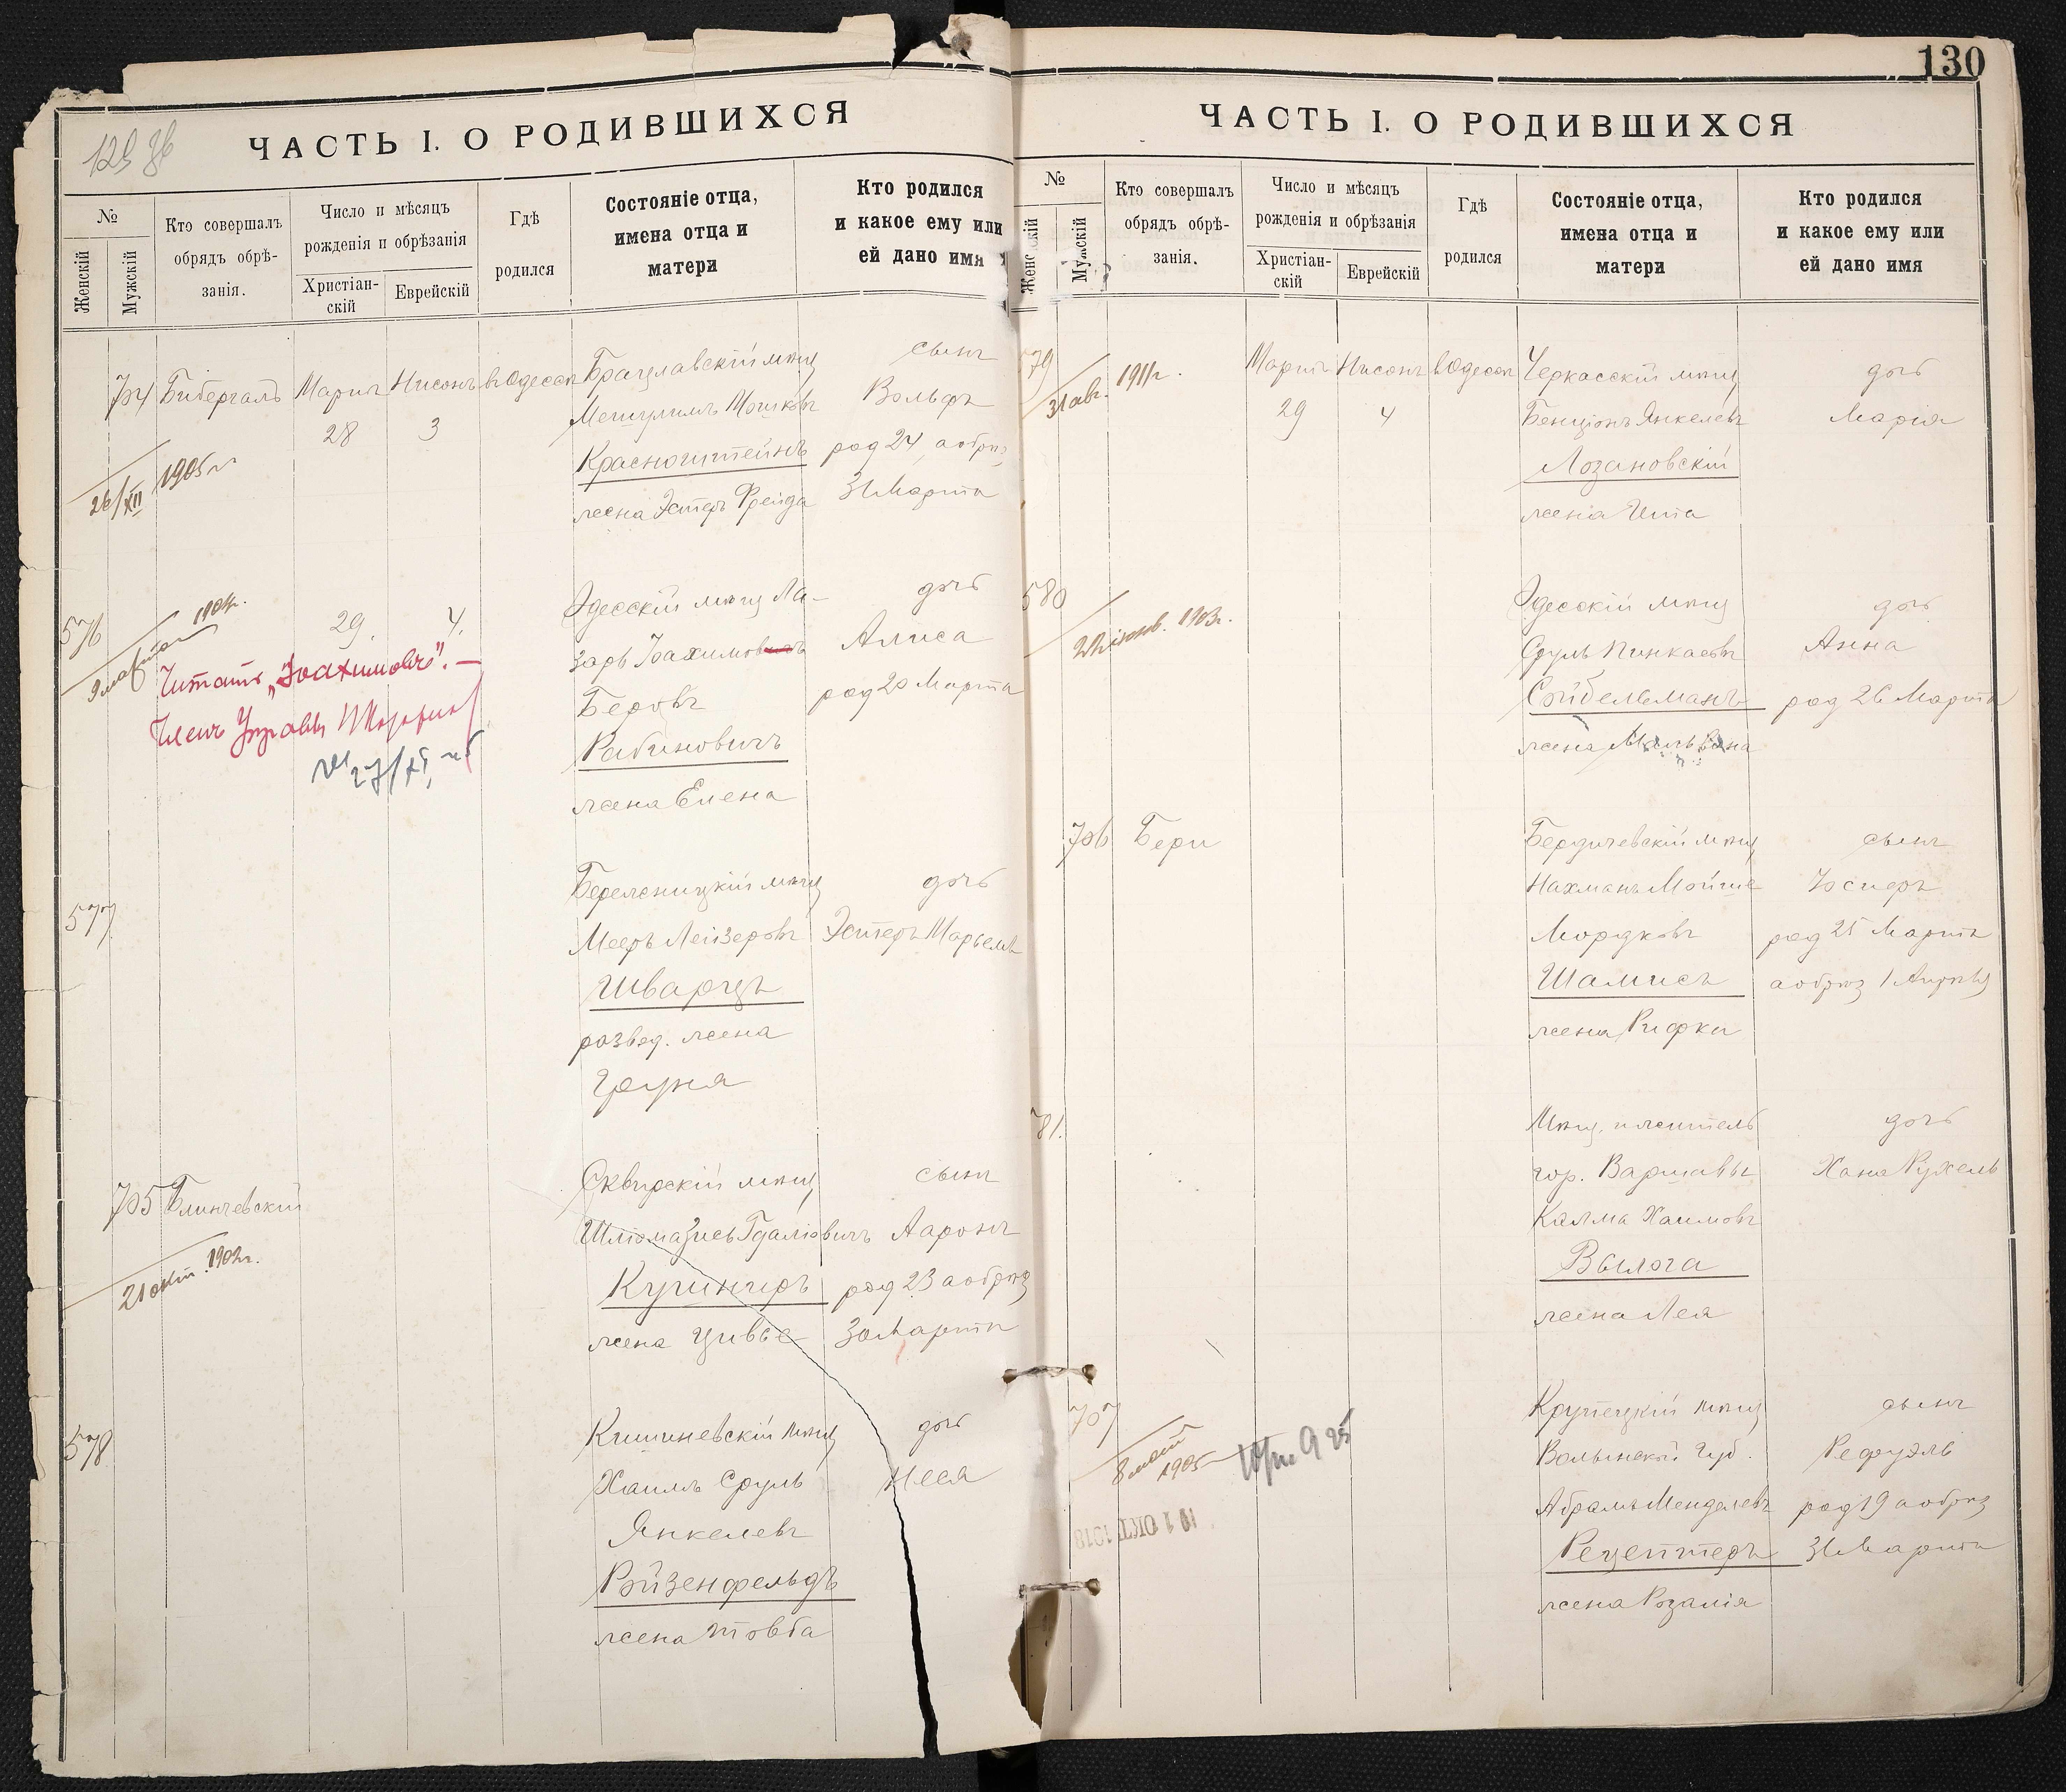 129 зв
ЧАСТЬ I. О РОДИВШИХСЯ
№
Женскій
Мужскій
Кто совершалъ
обрядъ обрѣ-
занія.
Число и мѣсяцъ
рожденія и обрѣзанія
Христіан-
скій
Еврейскій
Гдѣ
родился
Состояніе отца,
имена отца и
матери
Кто родился
и какое ему или
ей дано имя
704 Бибергалъ Мартъ Нисонъ въ Одессѣ Брацлавскій мѣщ сынъ
28 3 Мешулимъ Мошковъ Вольфъ
Красноштейнъ род 24, а обрѣз
26/XII 1905 г
жена Эстеръ Фрейда 31 Марта
576 29. 4. Одесскій мѣщ Ла- дочь
9 марта 1904г.
заръ Іоахимовичъ Алиса
Читать „Іоахимовъ".—
Беровъ род 20 Марта
Членъ Управы
Рабиновичъ
27/XI
жена Елена
577 Бережницкій мѣщ дочь
Мееръ Лейзеровъ Эстеръ Марьемъ
Шварцъ
развед. жена
Груня
705 Блинчевский Сквирскій мѣщ сынъ
Шліома Зись Гдаліовичъ Ааронъ
21 окт. 1902г.
Кушниръ род 23 а обрѣз
жена Цивье 30 Марта
578 Кишиневскій мѣщ дочь
Хаимъ Сруль Неся
Янкелевъ
Ройзенфельдъ
жена Товба
130
ЧАСТЬ I. О РОДИВШИХСЯ
№
Женскій
Мужскій
Кто совершалъ
обрядъ обрѣ-
занія.
Число и мѣсяцъ
рожденія и обрѣзанія
Христіан-
скій
Еврейскій
Гдѣ
родился
Состояніе отца,
имена отца и
матери
Кто родился
и какое ему или
ей дано имя
579 Мартъ Нисонъ въ Одессѣ Черкасскій мѣщ дочь
31 авг. 1911г.
29 4 Бенціонъ Янкелевъ Марія
Лозановскій
жена Ита
580 Одесскій мѣщ дочь
1903г.
Сруль Пинкасовъ Анна
Сойбельманъ род 26 Марта
жена
706 Бери Бердичевскій мѣщ сынъ
Нахманъ Мойше Іосифъ
Мордковъ род 25 Марта
Шамисъ а обрѣз 1 Апрѣля
жена Рифка
581. Мѣщ. и житель дочь
гор. Варшавы Хана Рухель
Калма Хаимовъ
Вылога
жена Лея
707 Крупецкій мѣщ сынъ
8 май 1905
Волынской Губ. Рефуэль
Абрамъ Менделевъ род 19 а обрѣз
1 ОКТ. 1918
Рецептеръ 31 Марта
жена Розалія